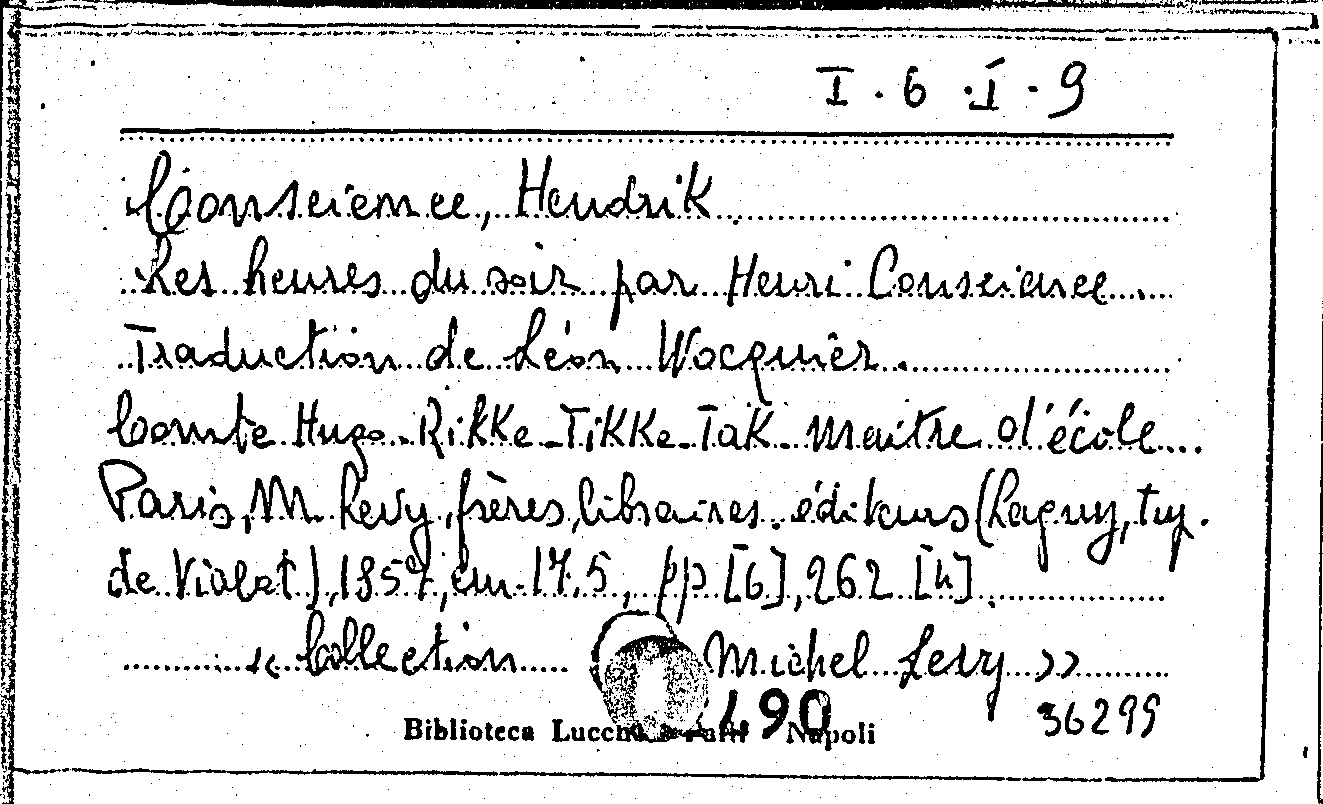 I. 6 .I. 9
Conscience, Hendrik
Les heures du soir par Henri Conscience
Traduction de Léon Wocquier.
Comte Hugo. Rikke-Tikke-Tak. Maitre d'école
Paris, M. Levy, frères, libraires. éditeurs (Lagny, ty.
de Vialat), 1857, cm. 17.5, pp [6], 262 [4]
« Collection Michel Levy »
490
36299
Biblioteca Napoli